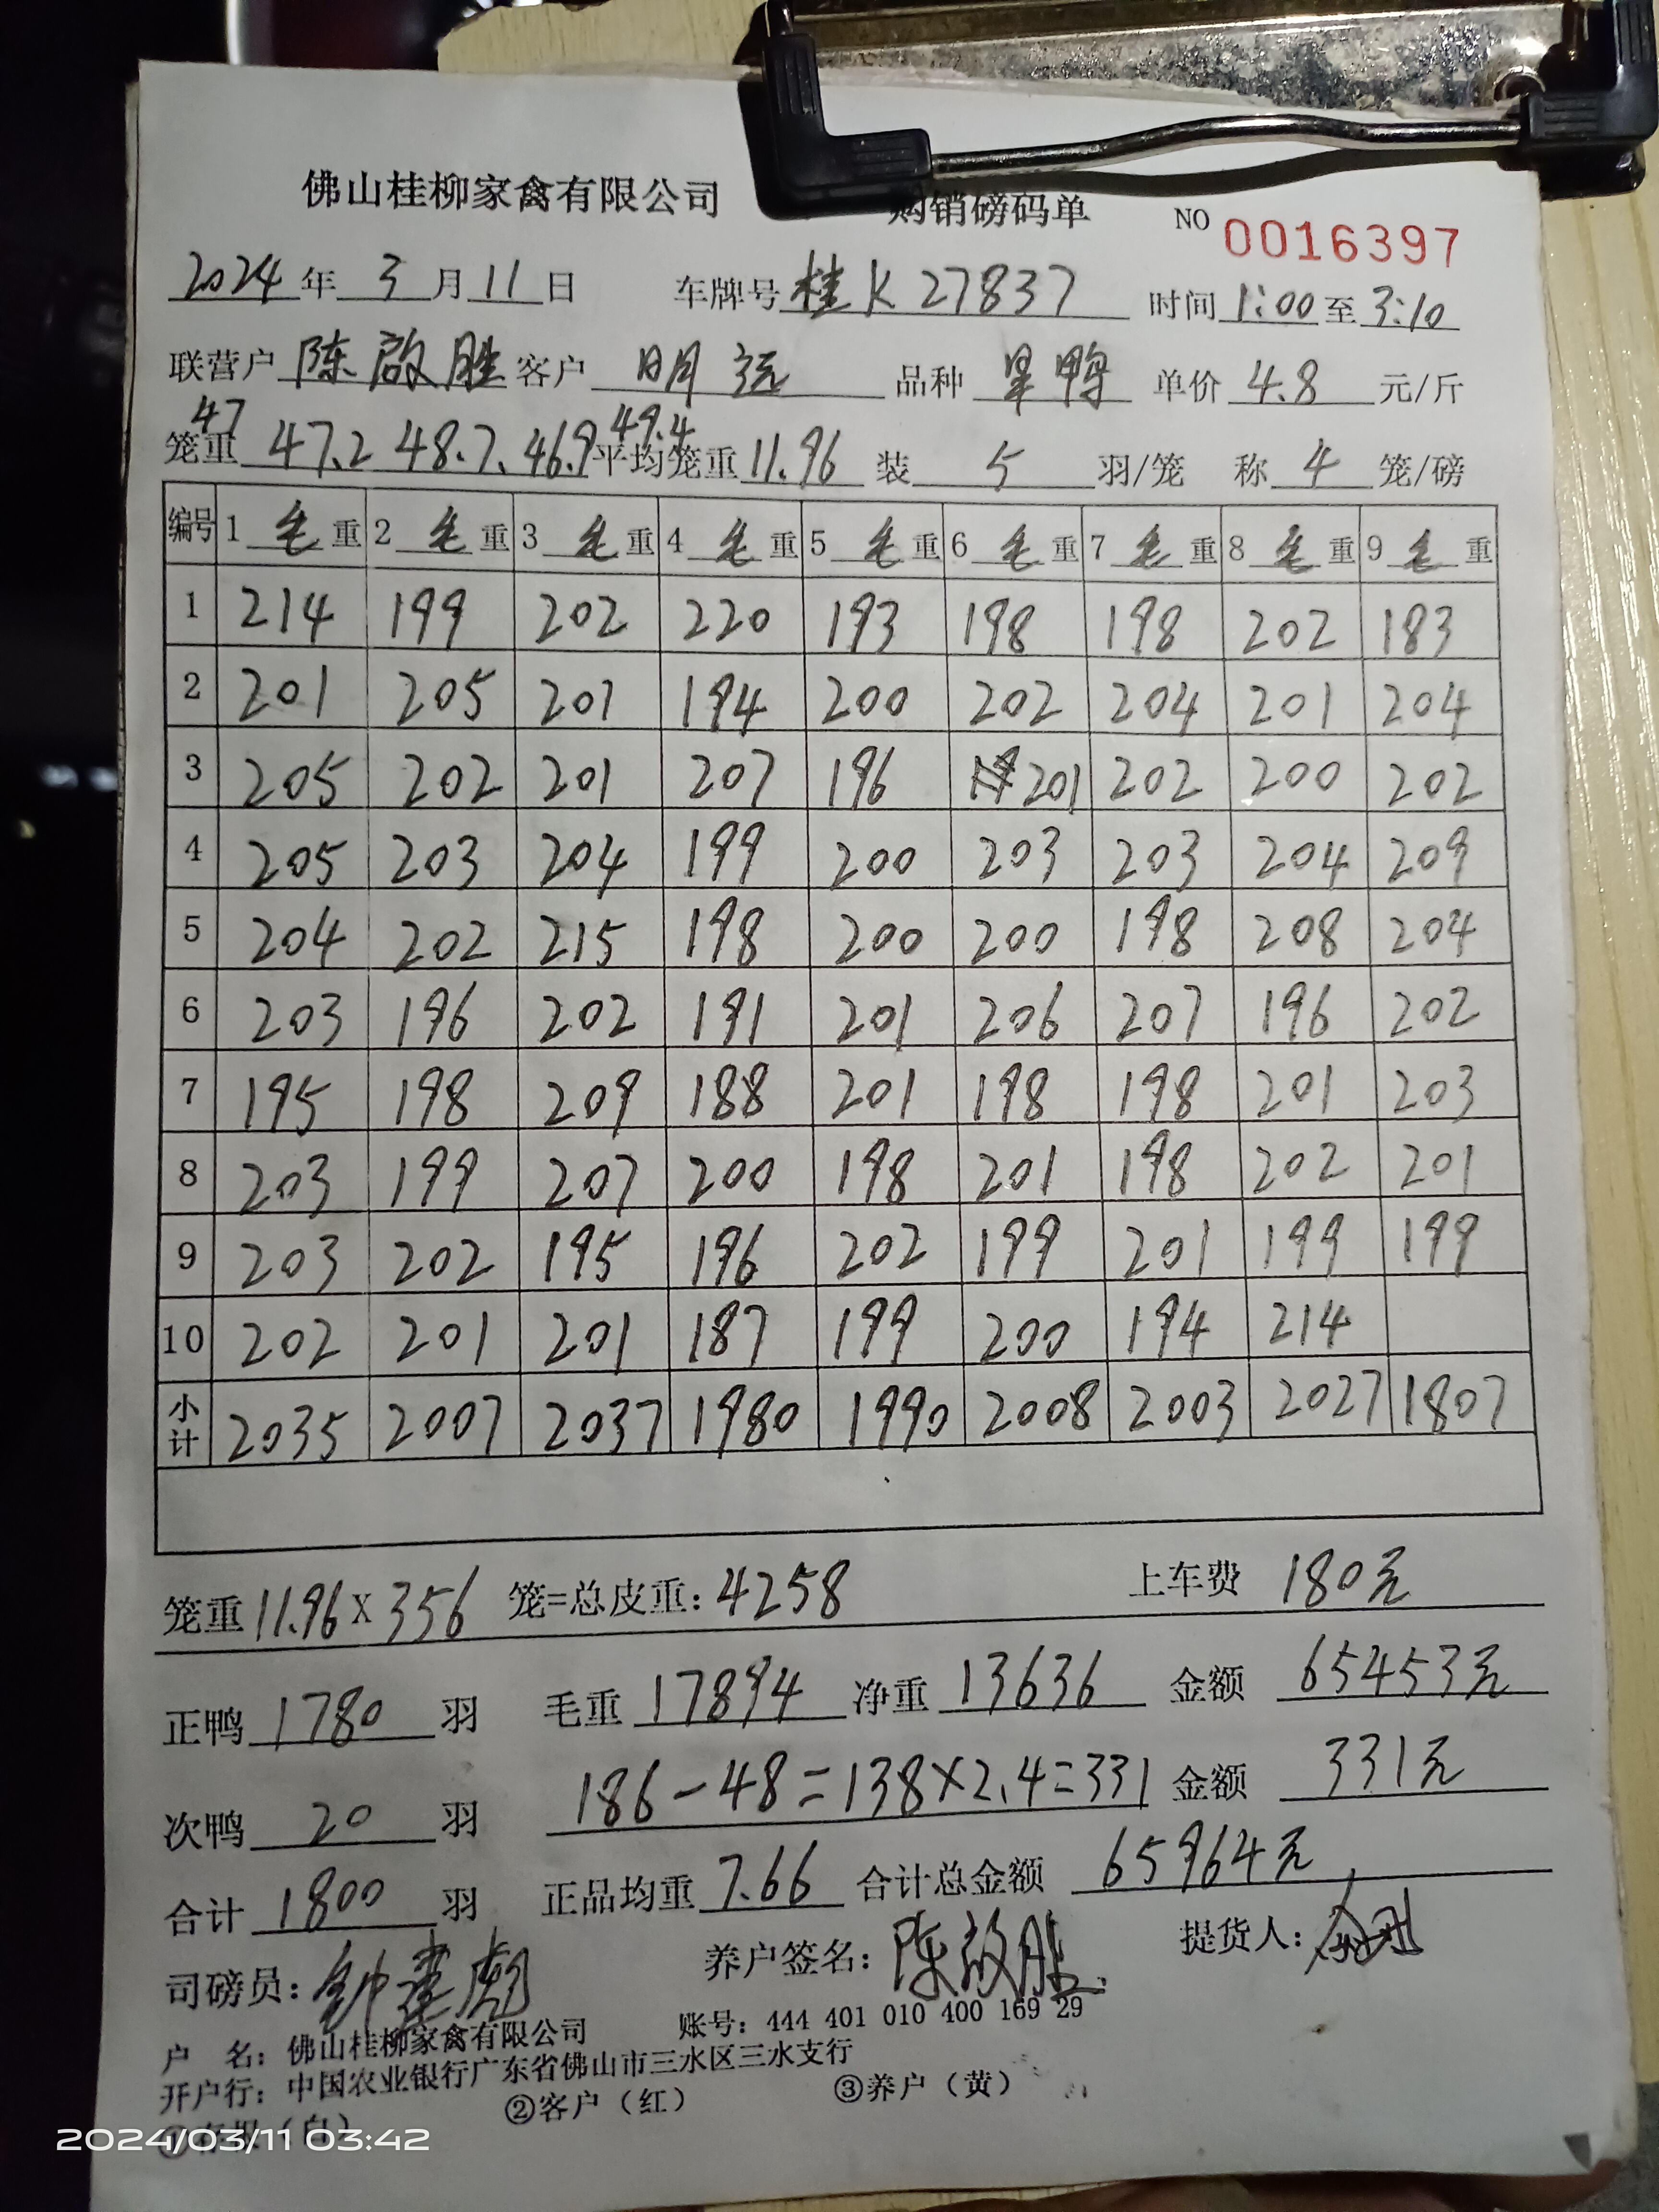 佛山桂柳家禽有限公司 购销磅码单 NO 0016397
2024年 3月11日 车牌号 桂K27837 时间 1:00 至 3:10
联营户 陈啟胜 客户 明 品种 旱鸭 单价 4.8 元/斤
47 49.4
笼重 47.2 48.7. 46.9 平均笼重 11.96 装 5 羽/笼 称 4 笼/磅
编号 1 毛 重 2 毛 重 3 毛 重 4 毛 重 5 毛 重 6 毛 重 7 毛 重 8 毛 重 9 毛 重
1 214 199 202 220 193 198 198 202 183
2 201 205 201 194 200 202 204 201 204
3 205 202 201 207 196 201 202 200 202
4 205 203 204 199 200 203 203 204 209
5 204 202 215 198 200 200 198 208 204
6 203 196 202 191 201 206 207 196 202
7 195 198 209 188 201 198 198 201 203
8 203 199 207 200 198 201 198 202 201
9 203 202 195 196 202 199 201 199 199
10 202 201 201 187 199 200 194 214
小计 2035 2007 2037 1980 1990 2008 2003 2027 1807
笼重 11.96 X 356 笼=总皮重: 4258 上车费 180元
正鸭 1780 羽 毛重 17894 净重 13636 金额 65453元
次鸭 20 羽 186-48=138×2.4=331 金额 331元
合计 1800 羽 正品均重 7.66 合计总金额 65964元
司磅员: 钟 养户签名: 陈啟胜 提货人:
户 名: 佛山桂柳家禽有限公司 账号: 444 401 010 400 169 29
开户行: 中国农业银行广东省佛山市三水区三水支行
②客户（红） ③养户（黄）
2024/03/11 03:42